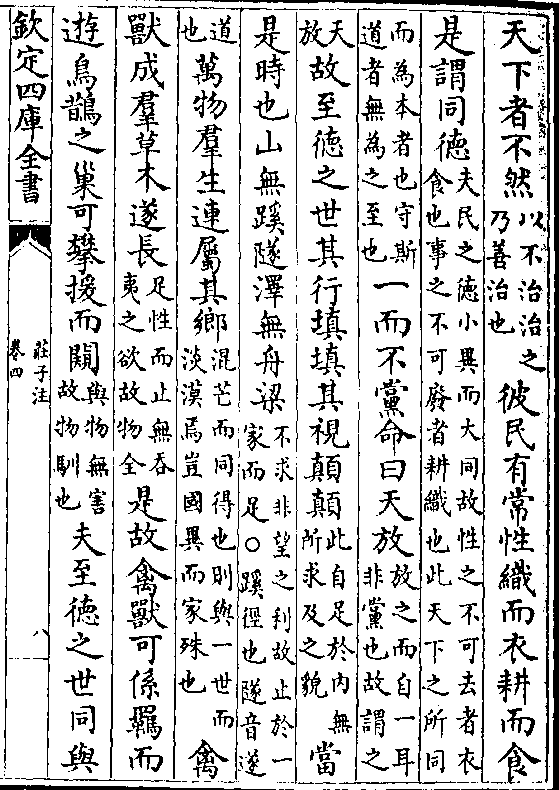 天下者不然以不治治之乃善治也彼民有常性織而衣耕而食
是謂同德夫民之德小異而大同故性之不可去者衣食也事之不可廢者耕織也此天下之所同
而為本者也守斯道者無為之至也一而不黨命曰天放放之而自一耳非黨也故謂之
天放故至德之世其行填填其視顛顛此自足於內無所求及之貌當
是時也山無蹊隧澤無舟梁不求非望之利故止於一家而足○蹊徑也隧音遂
道也萬物羣生連屬其鄉混芒而同得也則與一世而淡漠焉豈國異而家殊也禽
獸成羣草木遂長足性而止無吞夷之欲故物全是故禽獸可係羈而
遊鳥鵲之巢可攀援而闚與物無害故物馴也夫至德之世同與
欽定四庫全書
莊子注
卷四
八